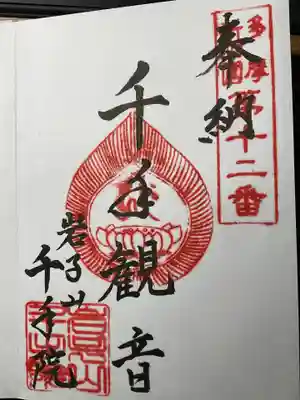 多摩
新四国
第十二番
奉納
千手観音
岩子山
千手院